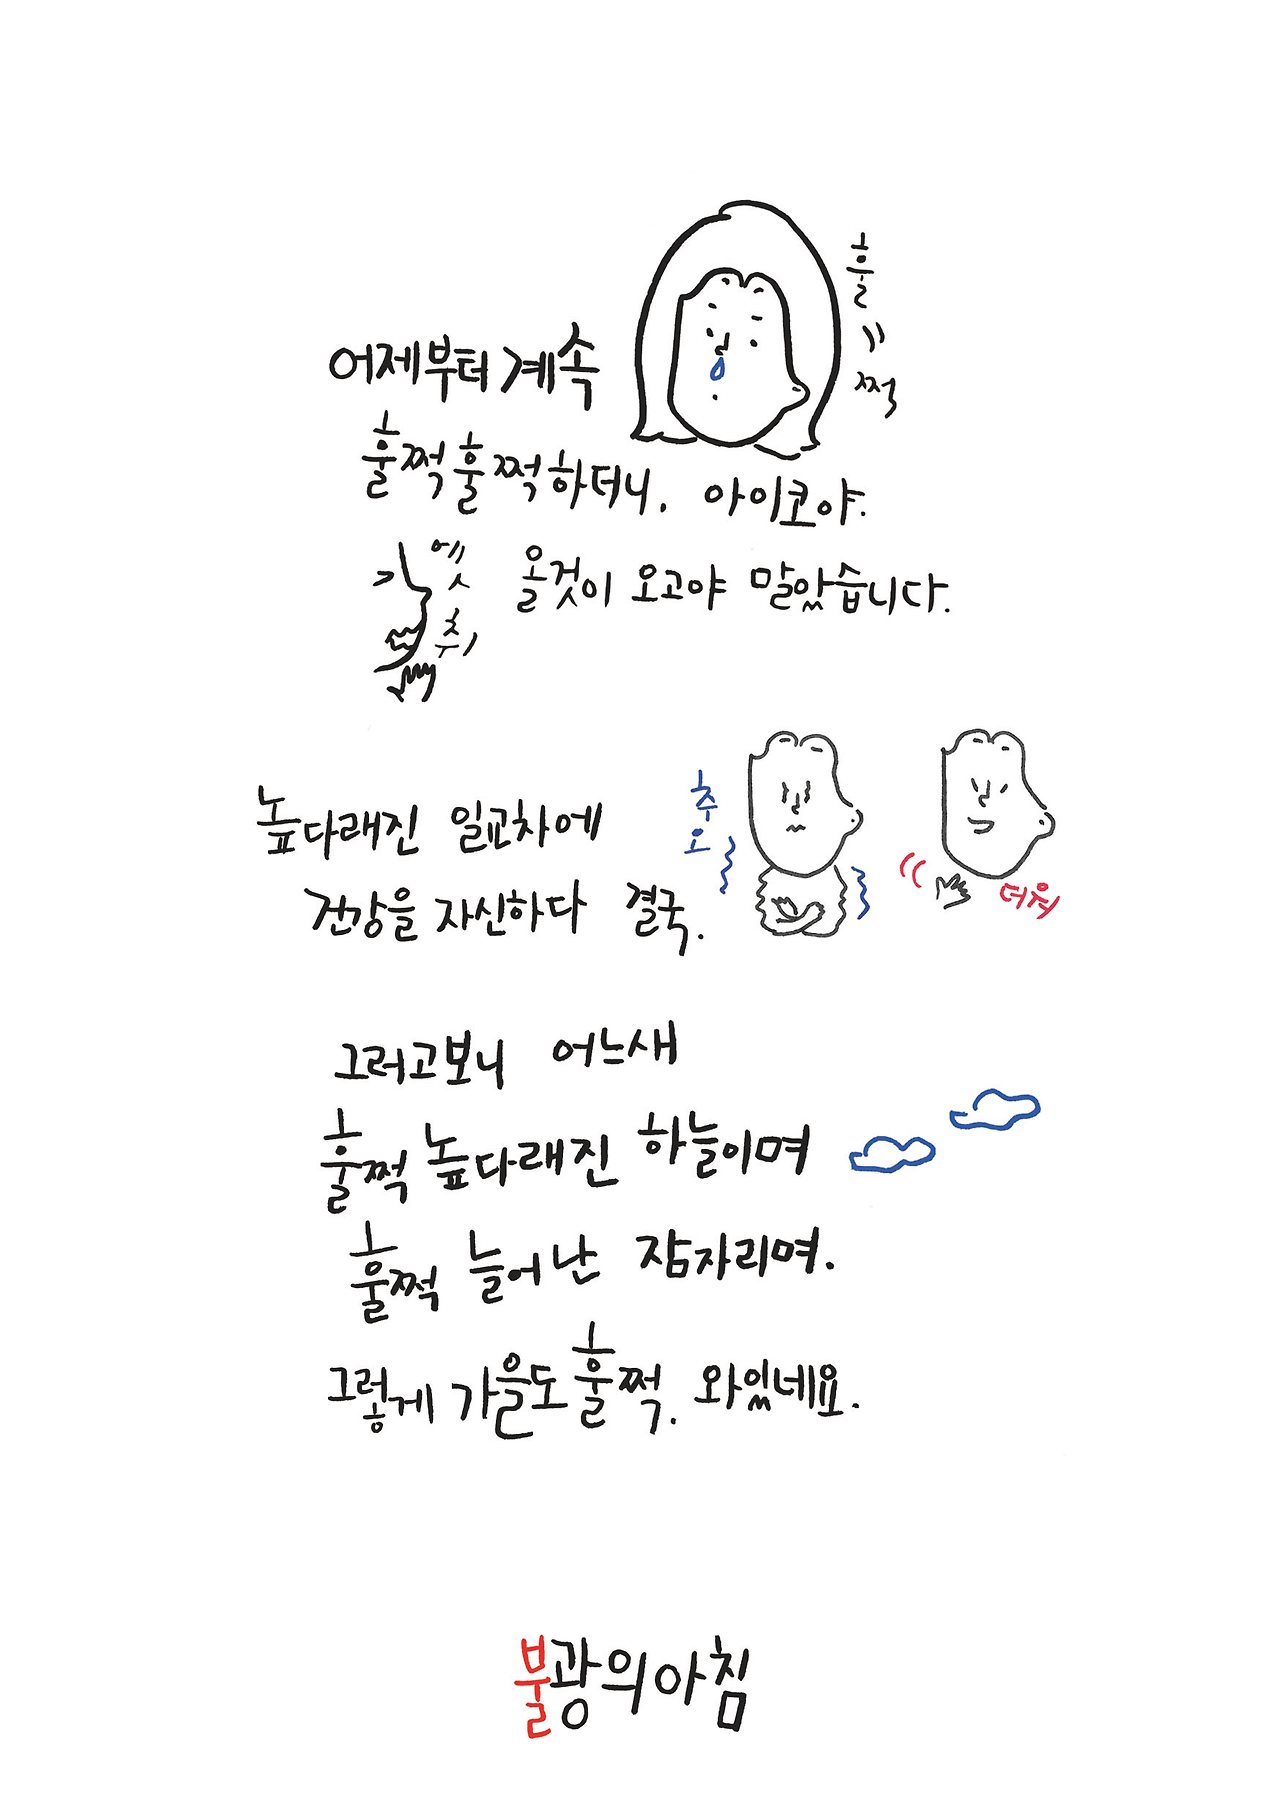 어제부터 계속
훌쩍
훌쩍훌쩍하더니. 아이코야.
엣취
올것이 오고야 말았습니다.
높다래진 일교차에
건강을 자신하다 결국.
추오
더워
그러고보니 어느새
훌쩍 높다래진 하늘이며
훌쩍 늘어난 잠자리며.
그렇게 가을도 훌쩍. 와있네요.
불광의아침